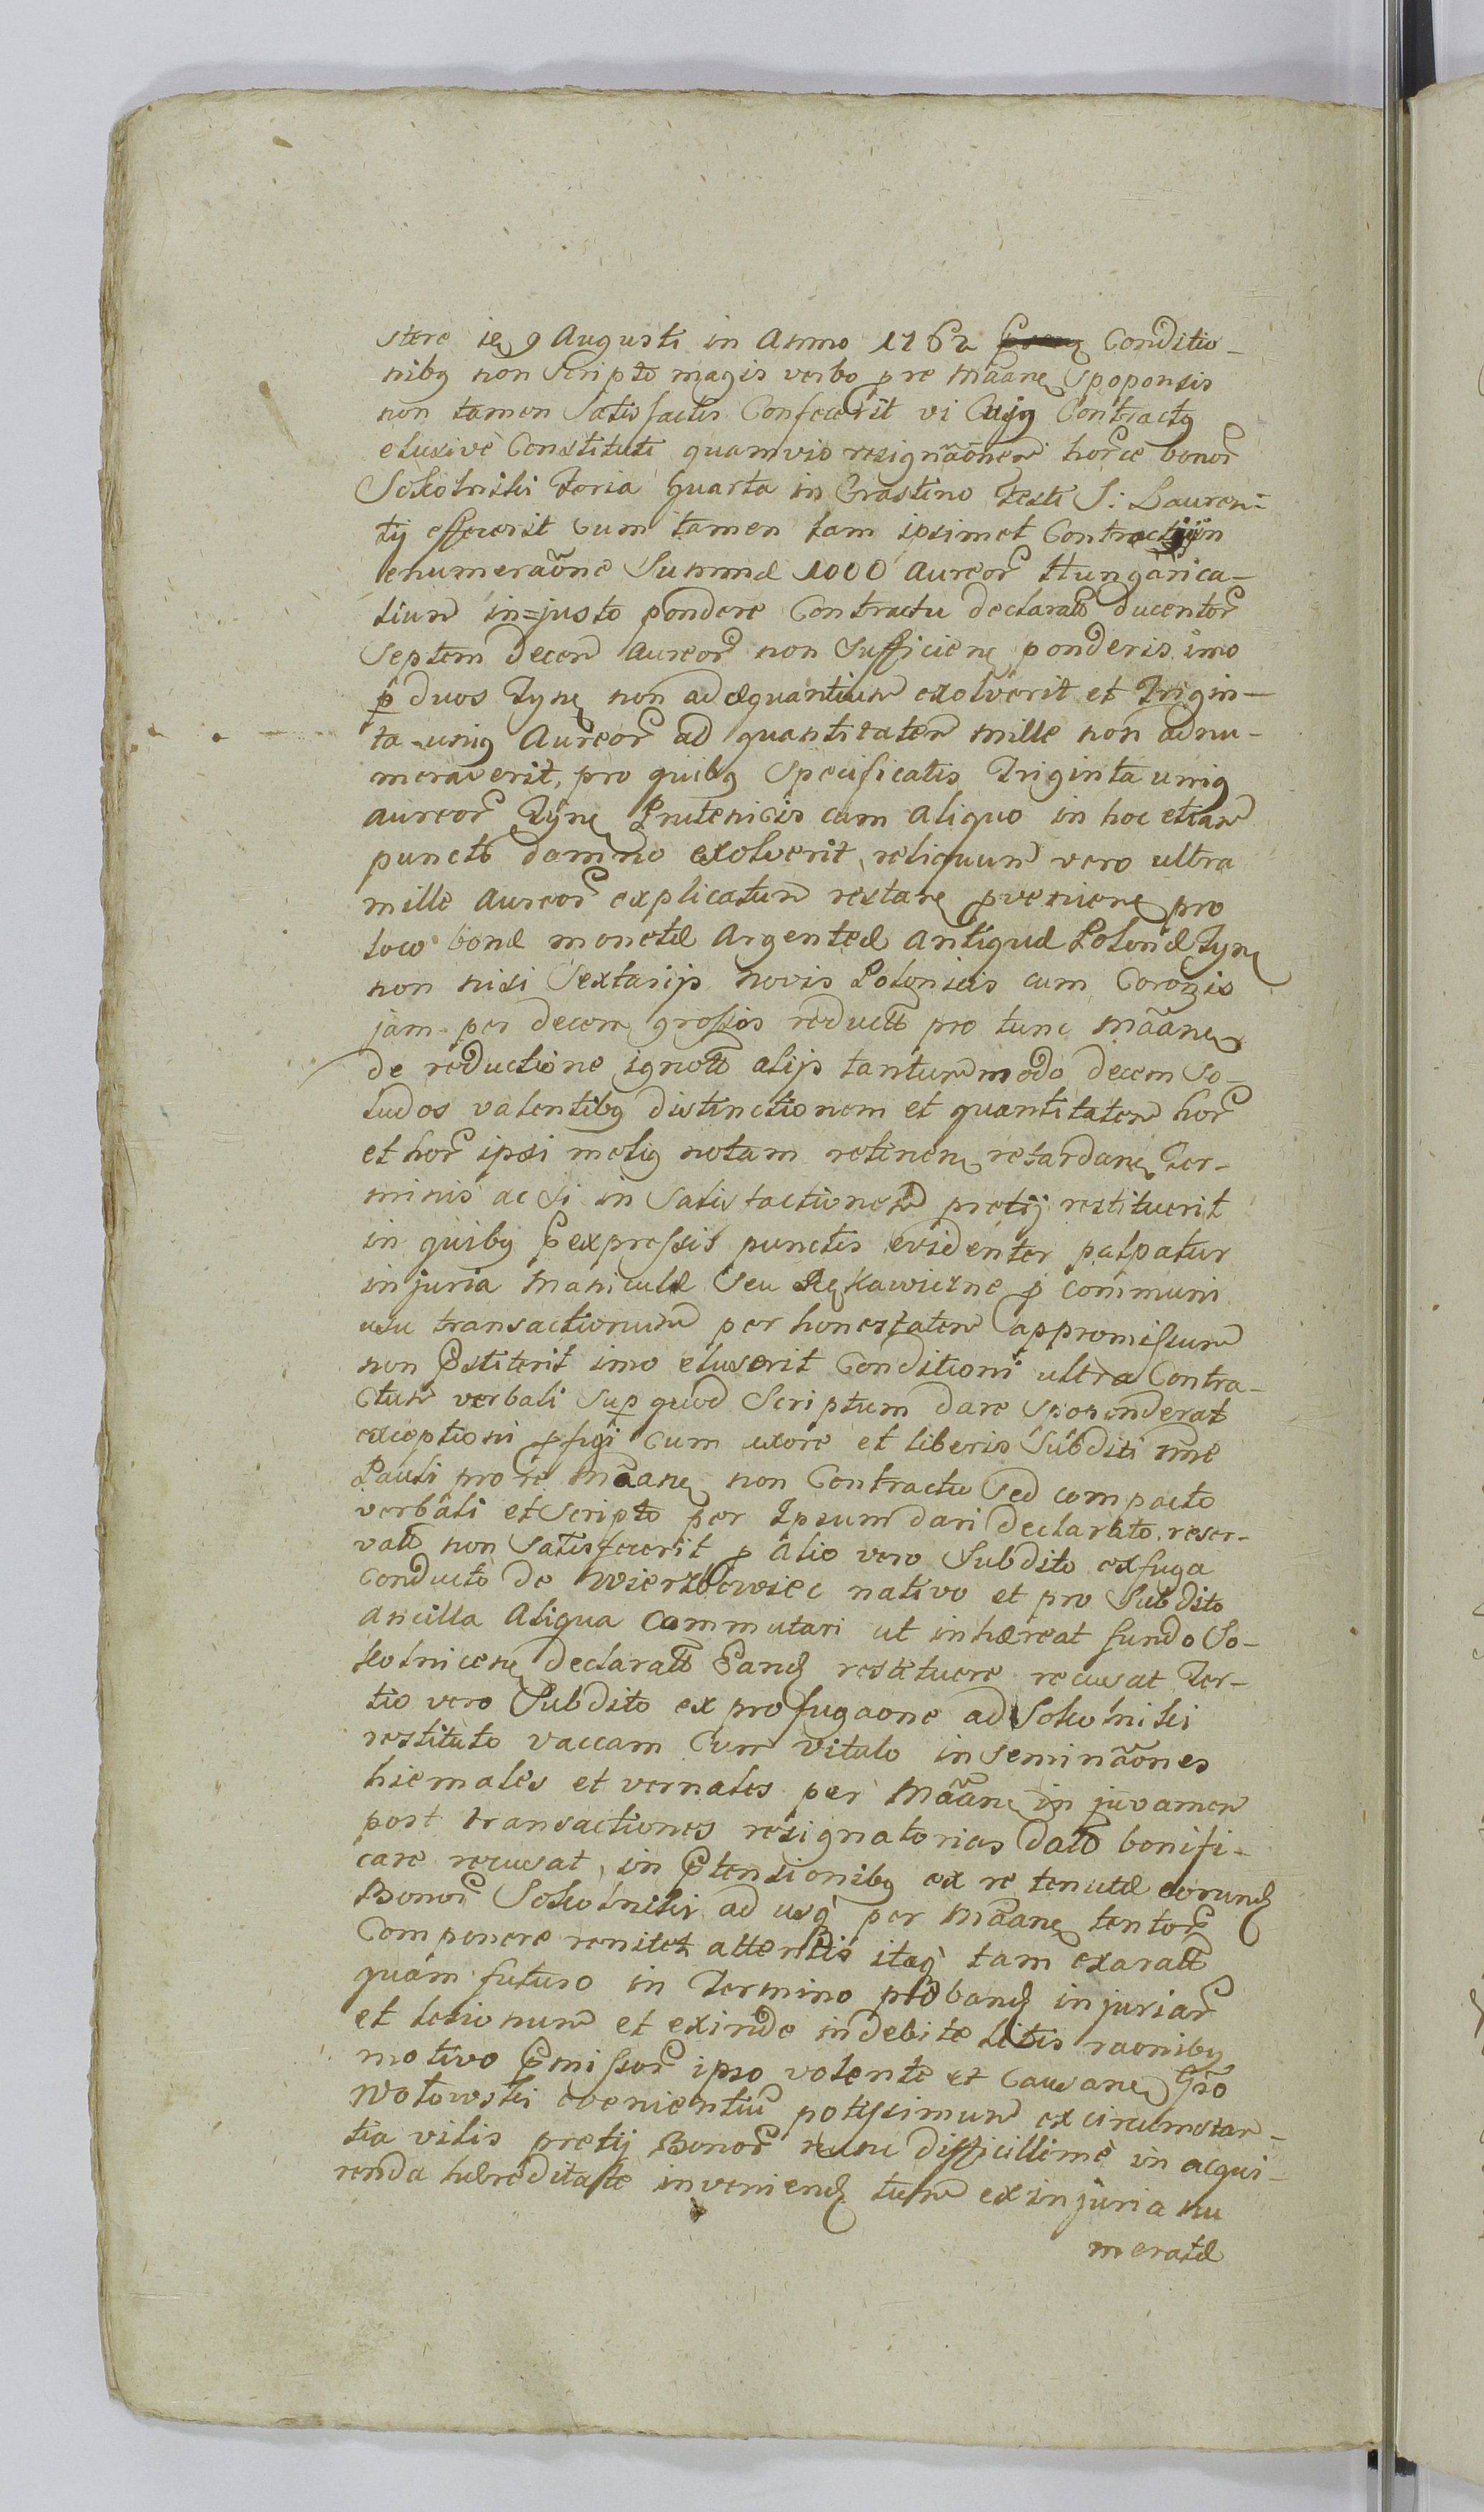 stere 9 Augusti in Anno 1762 Conditio-
nibq non Scripto magis verbo p re Mãane Spoponsis
non tamen Satisfactis Confecerit vi Cujq Contractq
elusivè Constituti quamvis resignãonem horce bonor
Sokolniki Feria Quarta in Crastino Festi S: Lauren-
tij effecerit cum tamen tam ipsimet Contractui in
enumeraõne Summæ 1000 Aureor Hungarica-
lium in=justo pondere Contractu declarato ducentor
Septem decem Aureor non Sufficien ponderis imo
p duos Tyn non adæquantium exolverit et Trigin-
ta uniq Aureor ad quantitatem mille non adnu-
meraverit, pro quibq Specificatis Triginta uniq
aureor Tyn Prutenicis cum aliquo in hoc etiam
puncto damno exolverit, reliquum vero ultra
mille Aureor explicatum restan pvenien pro
loco bonæ monetæ Argenteæ Antiquæ Polonæ Tyn
non nisi Sextarijs novis Polonicis cum Coronis
jam per decem grossos reduct pro tunc Mãane
de reductione ignot alijs tantummodo decem So-
lidos valentibq distinctionem et quantitatem hor
et hor ipsi meliq notam retinen retardan Ter-
minis ac si in Satisfactionem pretij restituerit
in quibq Pexpressis punctis evidenter palpatur
injuria Maniculæ Seu Rękawiczne p communi
usu transactionum per honestatem appromissum
non Pstiterit imo eluserit Conditioni ultra Contra-
ctum verbali Sup quod Scriptum dare Sponderat
exceptioni pfugi cum uxore et liberis Subditi nne
Pauli pro re Mãane non Contractu Sed compacto
verbali et Scripto per Ipsum dari declarato reser-
vato non Satisfecerit p Alio vero Subdito ex fuga
conducto de Wierzbowiec nativo et pro Subdito
Ancilla Aliqua Commutari ut inhæreat fundo So-
kolnicen declarato Pand restituere recusat Ter-
tio vero Subdito ex profugaone ad Sokolniki
restituto vaccam Cum vitulo inseminãones
hiemales et vernales per Mãane in juvamen
post transactiones resignatorias dato bonifi-
care recusat, in Ptensionibq ex re tenutæ eorund
Bonor Sokolniki ad usq per Mãane tentor
Componere renitet attentis itaq tam exarat
quàm futuro in Termino proband injuriar
et lesionum et exinde indebite litis raonibq
motivo Pmissor ipso volente et Causane Gso
Wotowski evenientiu potissimum ex circumstan-
tia vilis pretij Bonor nunc difficillimè in acqui-
renda hæreditate inveniend tum ex injuria nu
meratæ